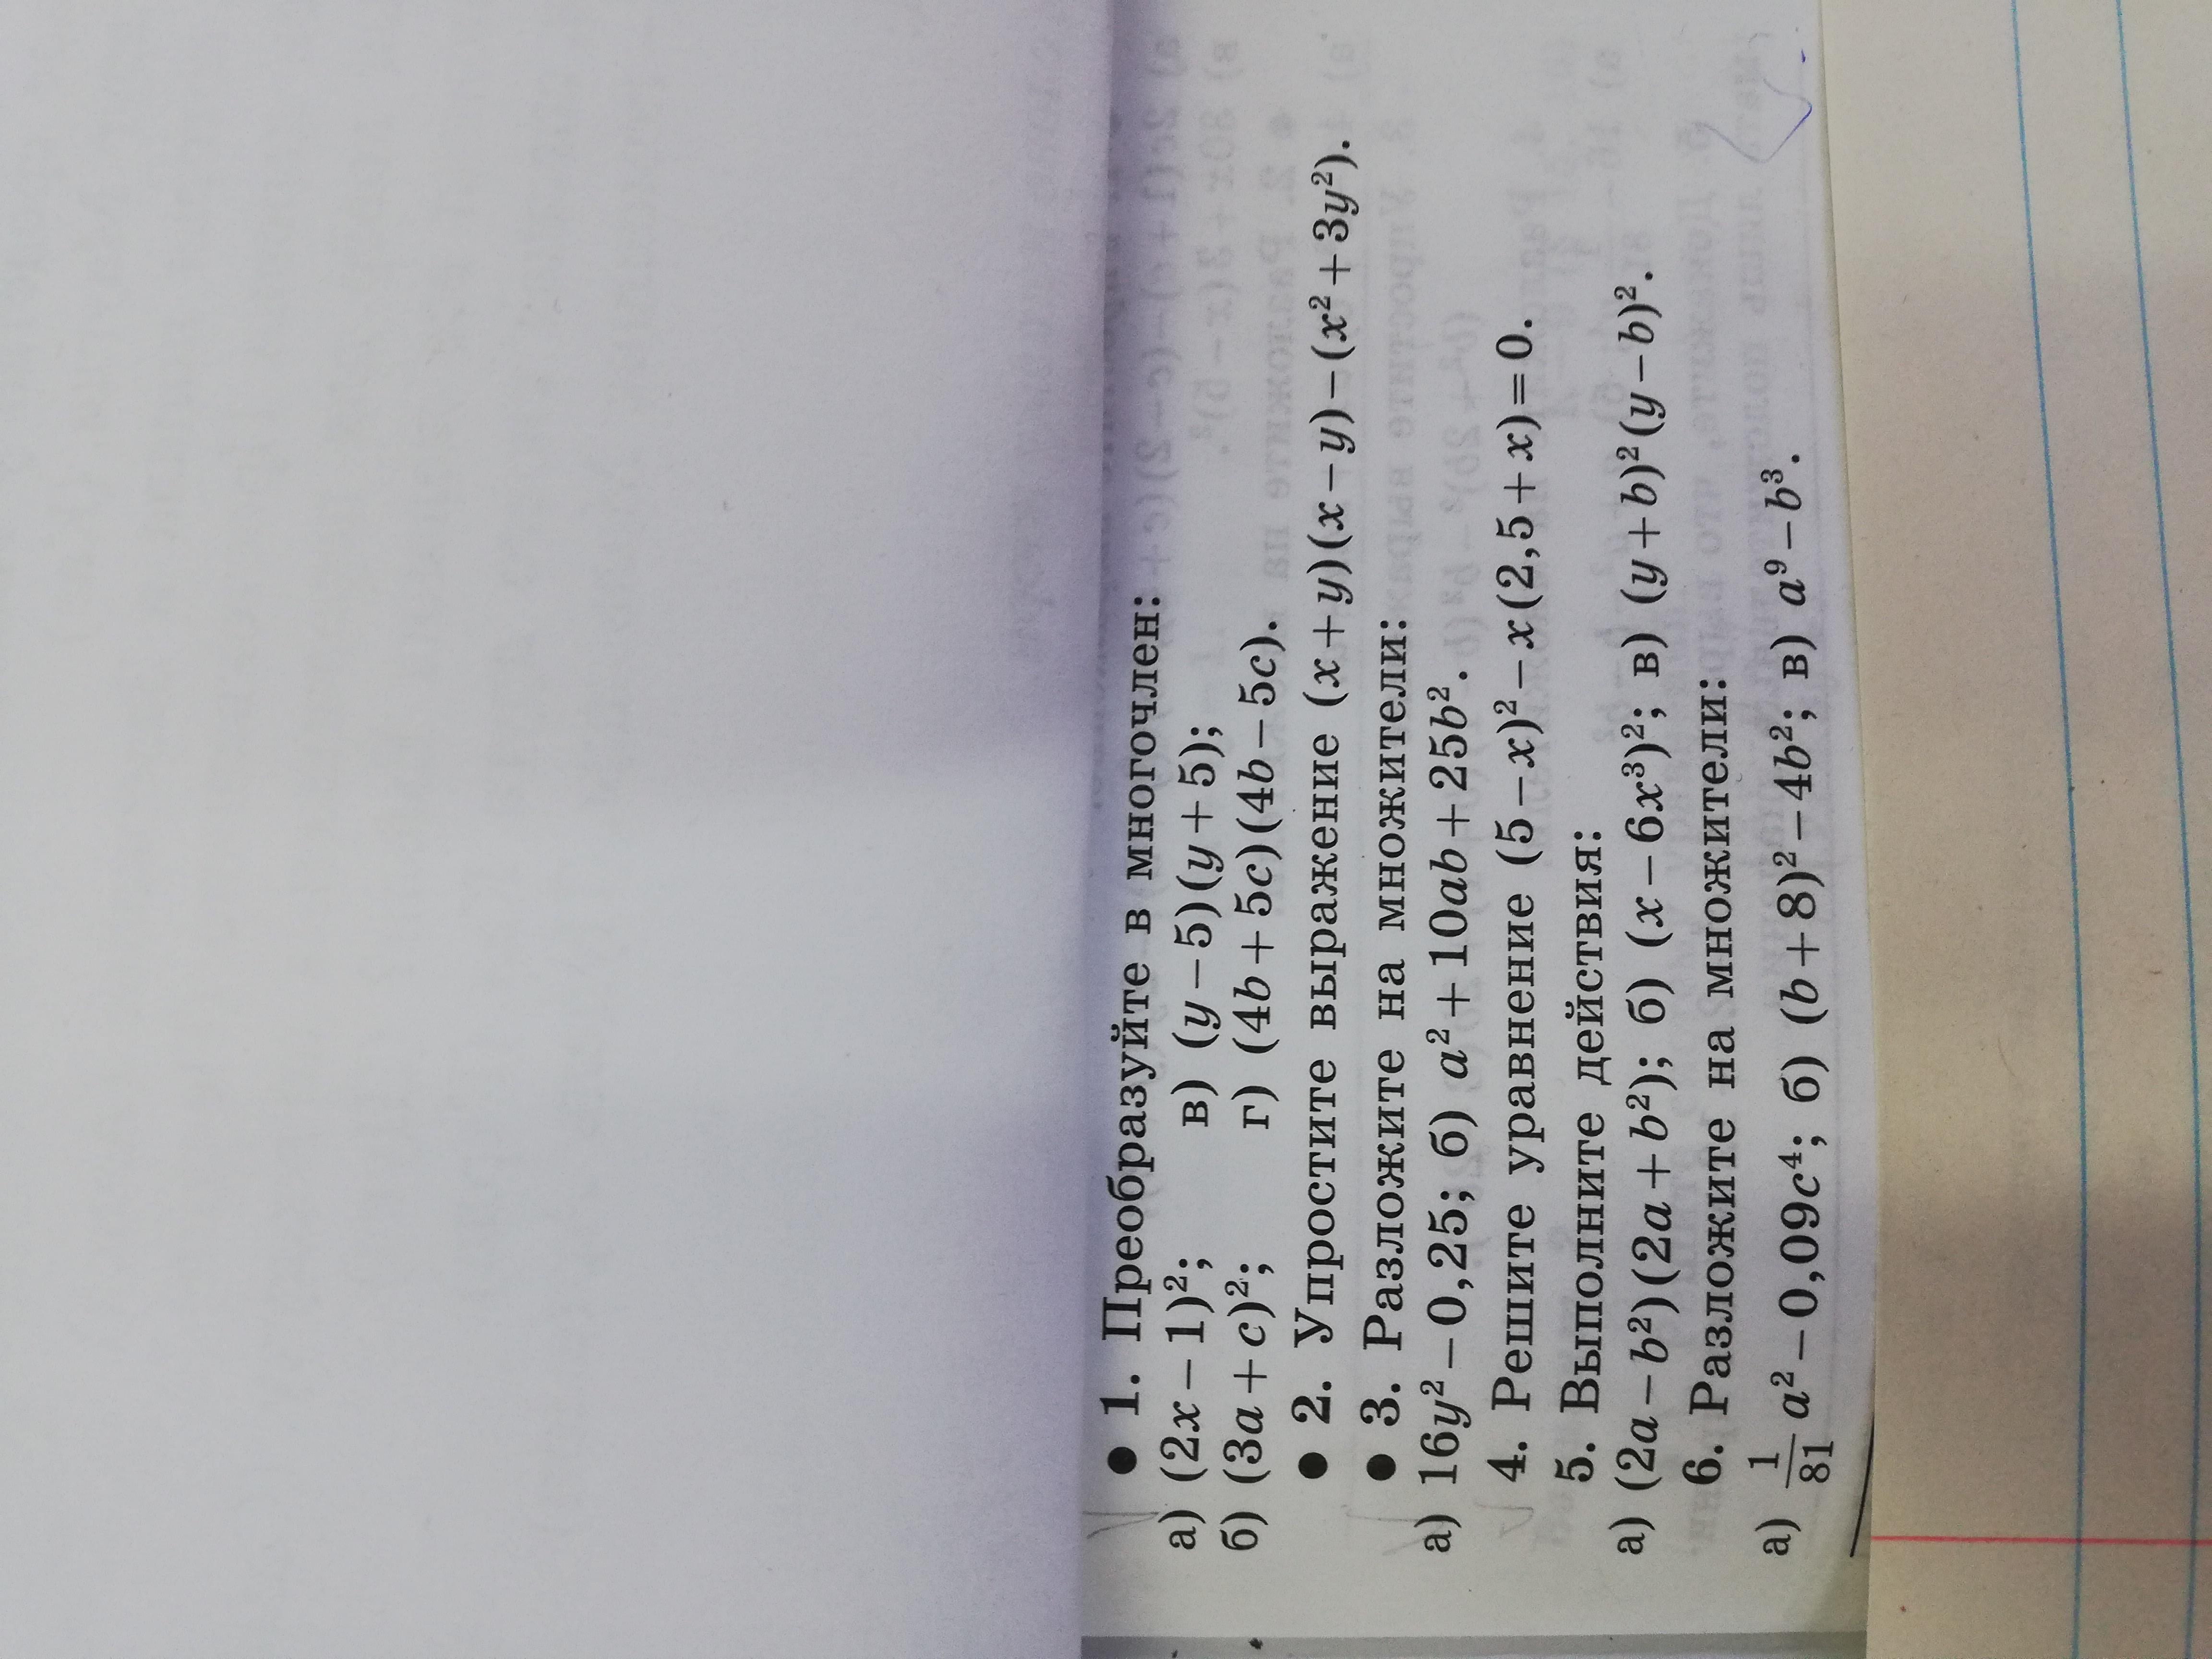 ● 1. Преобразуйте в многочлен:
а) (2x−1)²; в) (y−5)(y+5);
б) (3a+c)²; г) (4b+5c)(4b−5c).
● 2. Упростите выражение (x+y)(x−y)−(x²+3y²).
● 3. Разложите на множители:
а) 16y²−0,25; б) a²+10ab+25b².
4. Решите уравнение (5−x)²−x(2,5+x)=0.
5. Выполните действия:
а) (2a−b²)(2a+b²); б) (x−6x³)²; в) (y+b)²(y−b)².
6. Разложите на множители:
а) 1/81 a²−0,09c⁴; б) (b+8)²−4b²; в) a⁹−b³.